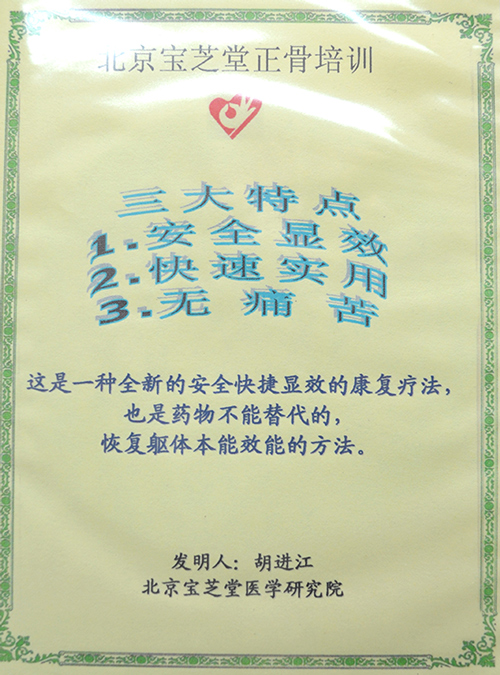 北京宝芝堂正骨培训
三大特点
1.安全显效
2.快速实用
3.无痛苦
这是一种全新的安全快捷显效的康复疗法，
也是药物不能替代的，
恢复躯体本能效能的方法。
发明人：胡进江
北京宝芝堂医学研究院